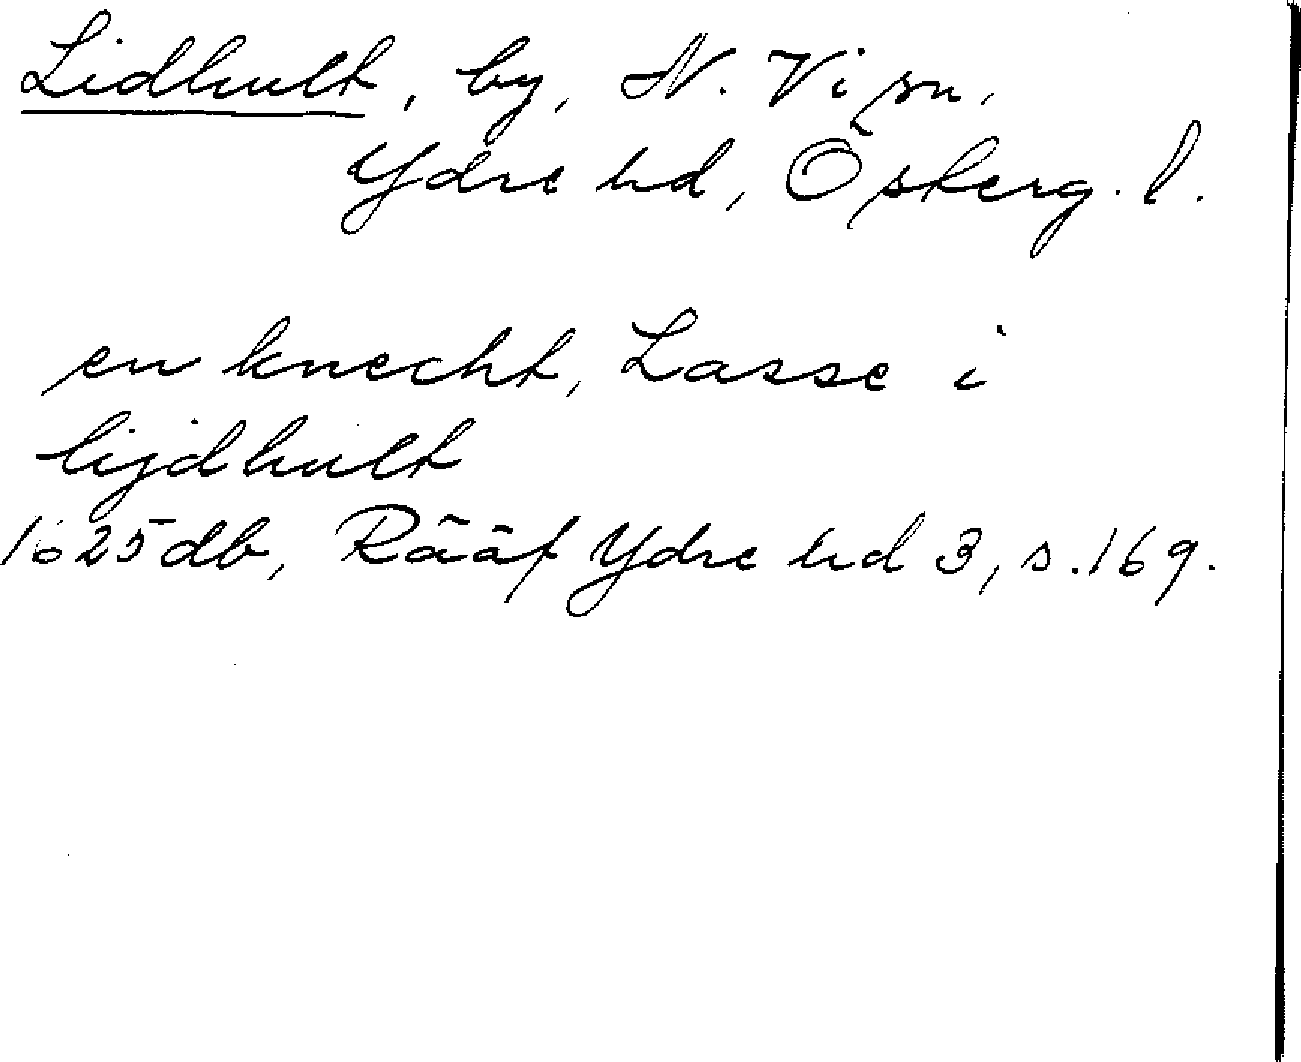 Lidhult, by, N. Vi sn,
Ydre hd, Österg. l.
en knecht, Lasse i
lijdhult
1625 db, Rääf Ydre hd 3, s. 169.